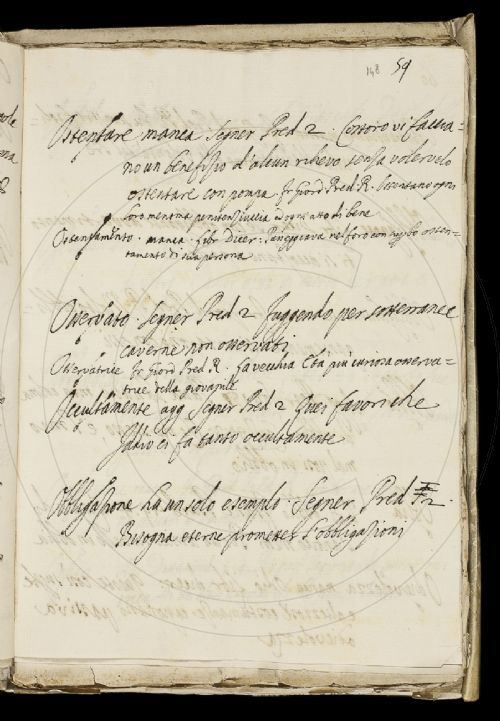 148 59
Ostentare . manca . Segner Pred 2 . Costoro vi faccia=
no un benefizio d'alcun rilievo senza volervelo
ostentare con pompa . Fr Giord Pred. R. Ostentano ogni
loro menoma penitenziuccia e ogni atto di bene
Ostentamento . manca . Libr Dicer : Pavoneggiava nel foro con osten=
tamento di sua persona
Osservato . Segner Pred 2 fuggendo per sotterranee
caverne non osservati
Osservatrice Fr Giord Pred. R. La vecchia Età più curiosa osserva=
trice della giovanile
Occultamente agg Segner Pred 2 Quei favori che
Iddio ci fa tanto occultamente
Obbligazione ha un solo esempio . Segner Pred 2 .
Bisogna eterne promesse l'obbligazioni